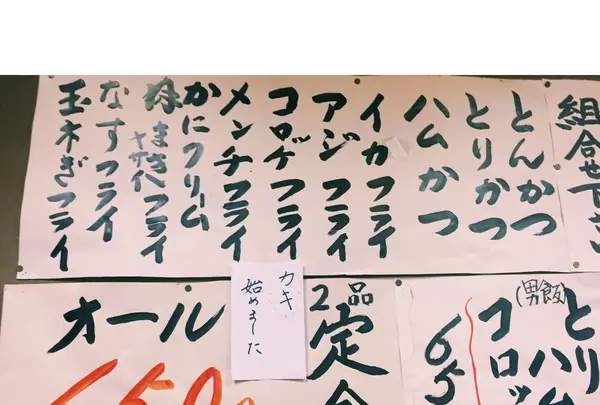 組合せ下さい
とんかつ
とりかつ
ハムかつ
イカフライ
アジフライ
コロッケフライ
メンチフライ
かにクリーム
フライ
なすフライ
玉ネぎフライ
カキ
始めました
オール
650
2品
定
(男飯)
とり
ハム
コロッ
65